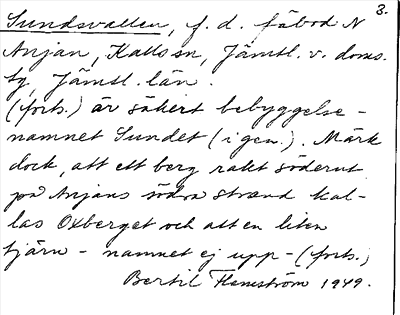 3.
Sundsvallen, f. d. fäbod N
Anjan, Kalls sn, Jämtl. v. doms.
by, Jämtl. län.
(forts.) är säkert bebyggelse-
namnet Sundet (i gen.). Märk
dock, att ett berg rakt söderut
på Anjans södra strand kal-
las Oxberget och att en liten
tjärn - namnet ej upp- (forts.)
Bertil Flemström 1949.